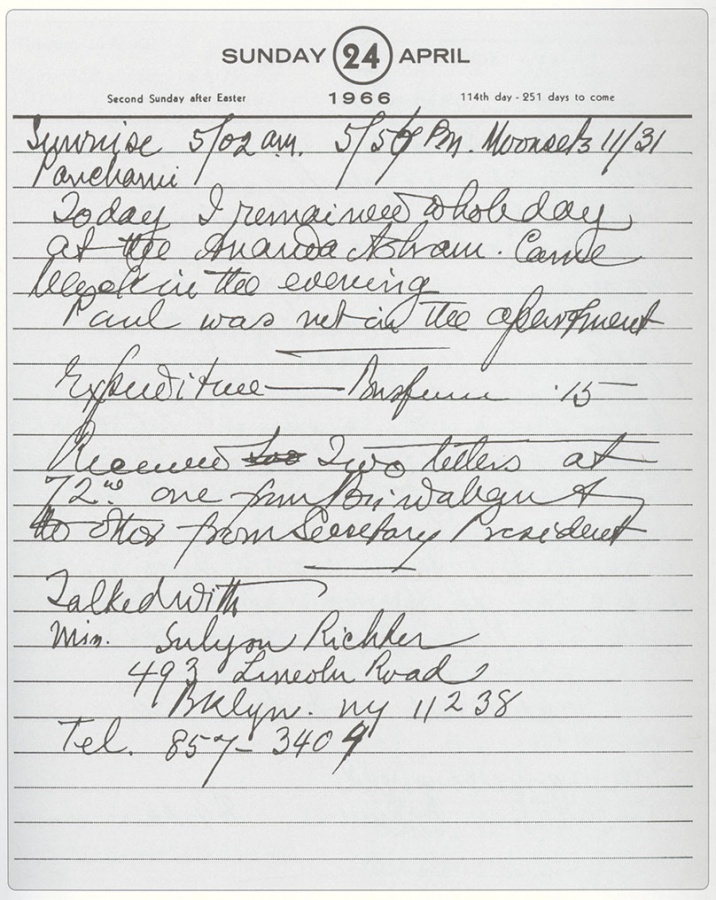 SUNDAY 24 APRIL
Second Sunday after Easter 1966 114th day - 251 days to come
Sunrise 5/02 a.m. 5/56 Pm. Moonsets 11/31
Panchami
Today I remained whole day
at the Ananda Ashram. Came
back in the evening
Paul was not in the apartment
Expenditure — Busfare .15
Received two Two letters at
72nd one from Brindaban &
the other from Secretary President
Talked with
Min. Sulyon Richter
493 Lincoln Road
Bklyn. ny 11238
Tel. 857-3409